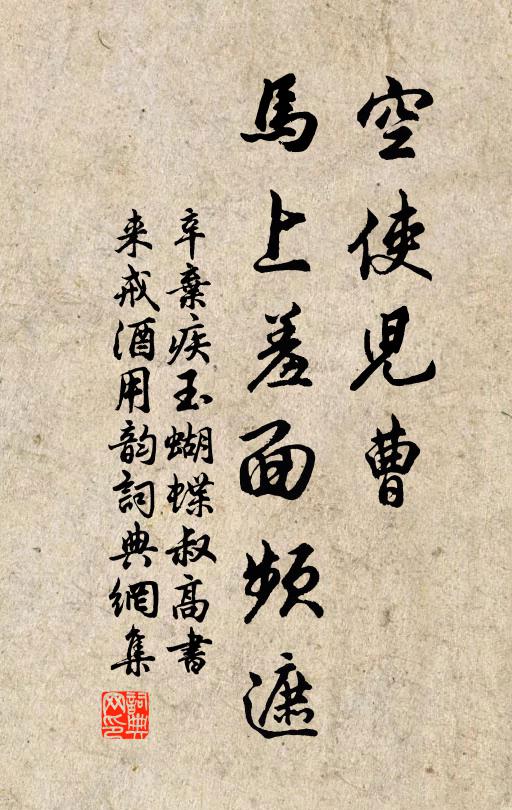 空使児曹
馬上羞面頻遮
辛棄疾玉蝴蝶叔高書
来戒酒用韵詞典網集
詞典
网印